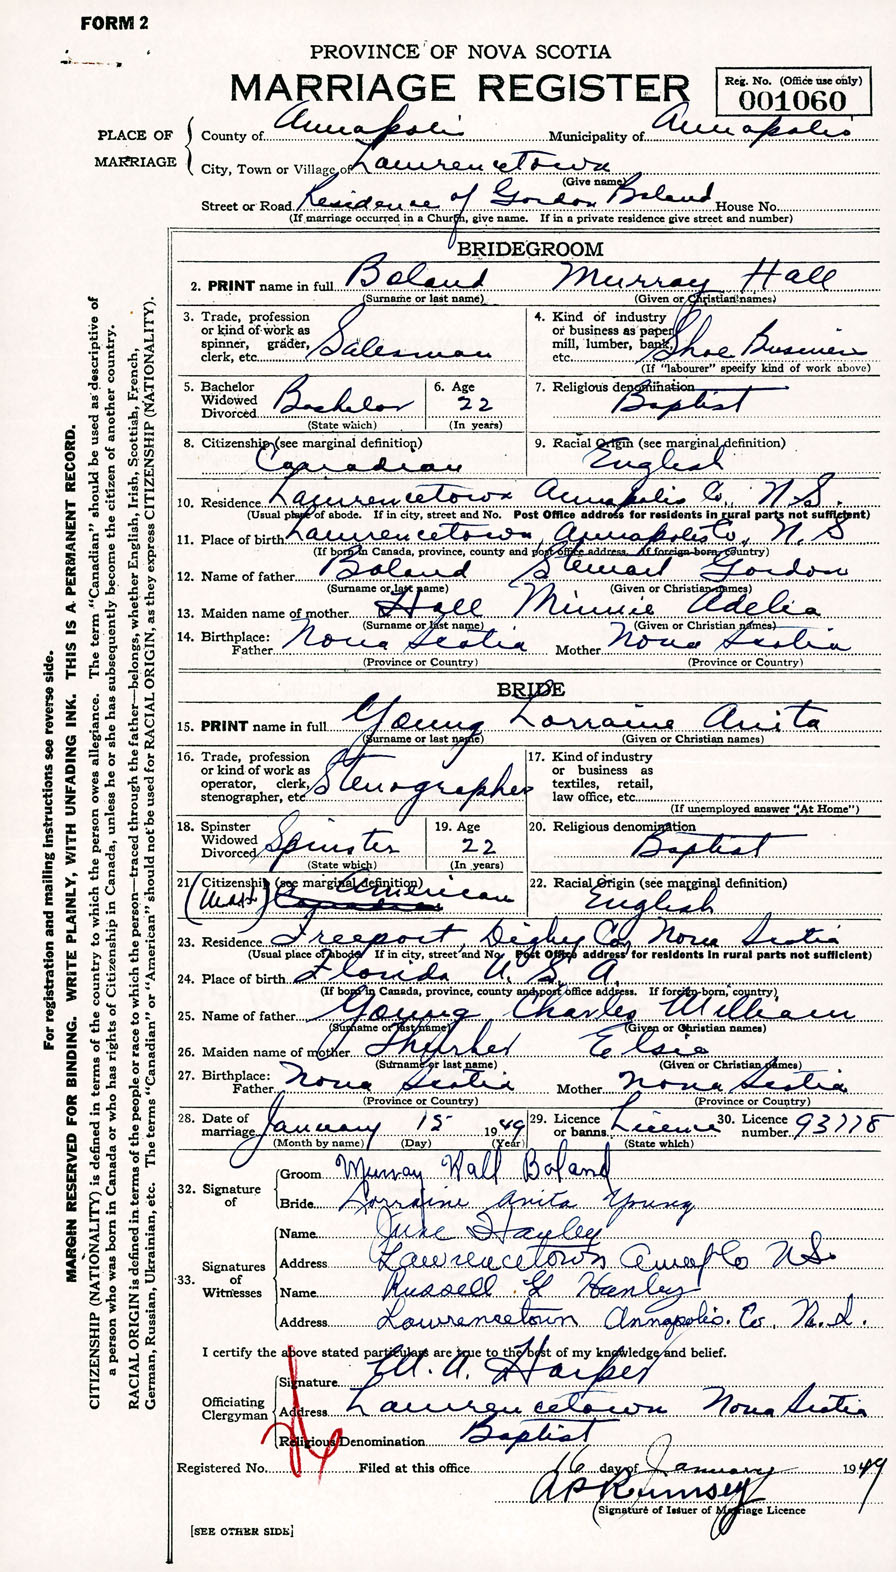 FORM 2
PROVINCE OF NOVA SCOTIA
MARRIAGE REGISTER
Reg. No. (Office use only)
001060
PLACE OF MARRIAGE
County of Annapolis Municipality of Annapolis
City, Town or Village of Lawrencetown
(Give name)
Street or Road Residence of Gordon Boland House No.
(If marriage occurred in a Church, give name. If in a private residence give street and number)
BRIDEGROOM
2. PRINT name in full Boland Murray Hall
(Surname or last name) (Given or Christian names)
3. Trade, profession or kind of work as spinner, grader, clerk, etc. Salesman
4. Kind of industry or business as paper mill, lumber, bank, etc. Shoe Business
(If "labourer" specify kind of work above)
5. Bachelor Widowed Divorced Bachelor
(State which)
6. Age 22
(In years)
7. Religious denomination Baptist
8. Citizenship (see marginal definition) Canadian
9. Racial Origin (see marginal definition) English
10. Residence Lawrencetown Annapolis Co., N.S.
(Usual place of abode. If in city, street and No. Post Office address for residents in rural parts not sufficient)
11. Place of birth Lawrencetown, Annapolis Co, N.S
(If born in Canada, province, county and post office address. If foreign-born, country)
12. Name of father Boland Stewart Gordon
(Surname or last name) (Given or Christian names)
13. Maiden name of mother Hall Minnie Adelia
(Surname or last name) (Given or Christian names)
14. Birthplace: Father Nova Scotia Mother Nova Scotia
(Province or Country) (Province or Country)
BRIDE
15. PRINT name in full Young Lorraine Anita
(Surname or last name) (Given or Christian names)
16. Trade, profession or kind of work as operator, clerk, stenographer, etc. Stenographer
17. Kind of industry or business as textiles, retail, law office, etc.
(If unemployed answer "At Home")
18. Spinster Widowed Divorced Spinster
(State which)
19. Age 22
(In years)
20. Religious denomination Baptist
21 Citizenship (see marginal definition) American Canadian
22. Racial Origin (see marginal definition) English
23. Residence Freeport, Digby Co, Nova Scotia
(Usual place of abode. If in city, street and No. Post Office address for residents in rural parts not sufficient)
24. Place of birth Florida U.S.A
(If born in Canada, province, county and post office address. If foreign-born, country)
25. Name of father Young Charles William
(Surname or last name) (Given or Christian names)
26. Maiden name of mother Thurber Elsie
(Surname or last name) (Given or Christian names)
27. Birthplace: Father Nova Scotia Mother Nova Scotia
(Province or Country) (Province or Country)
28. Date of marriage January 15 1949
(Month by name) (Day) (Year)
29. Licence or banns Licence
(State which)
30. Licence number 93778
32. Signature of
Groom Murray Hall Boland
Bride Lorraine Anita Young
33. Signatures of Witnesses
Name June
Address Lawrencetown Annap Co NS.
Name Russell G Hanley
Address Lawrencetown Annapolis. Co., N.S.
I certify the above stated particulars are true to the best of my knowledge and belief.
Officiating Clergyman
Signature Harper
Address Lawrencetown Nova Scotia
Religious Denomination Baptist
Registered No. Filed at this office 16 day of January 1949
(Signature of Issuer of Marriage Licence
[SEE OTHER SIDE]
For registration and mailing instructions see reverse side.
MARGIN RESERVED FOR BINDING. WRITE PLAINLY, WITH UNFADING INK. THIS IS A PERMANENT RECORD.
CITIZENSHIP (NATIONALITY) is defined in terms of the country to which the person owes allegiance. The term "Canadian" should be used as descriptive of
a person who was born in Canada or who has rights of Citizenship in Canada, unless he or she has subsequently become the citizen of another country.
RACIAL ORIGIN is defined in terms of the people or race to which the person—traced through the father—belongs, whether English, Irish, Scottish, French,
German, Russian, Ukrainian, etc. The terms "Canadian" or "American" should not be used for RACIAL ORIGIN, as they express CITIZENSHIP (NATIONALITY).